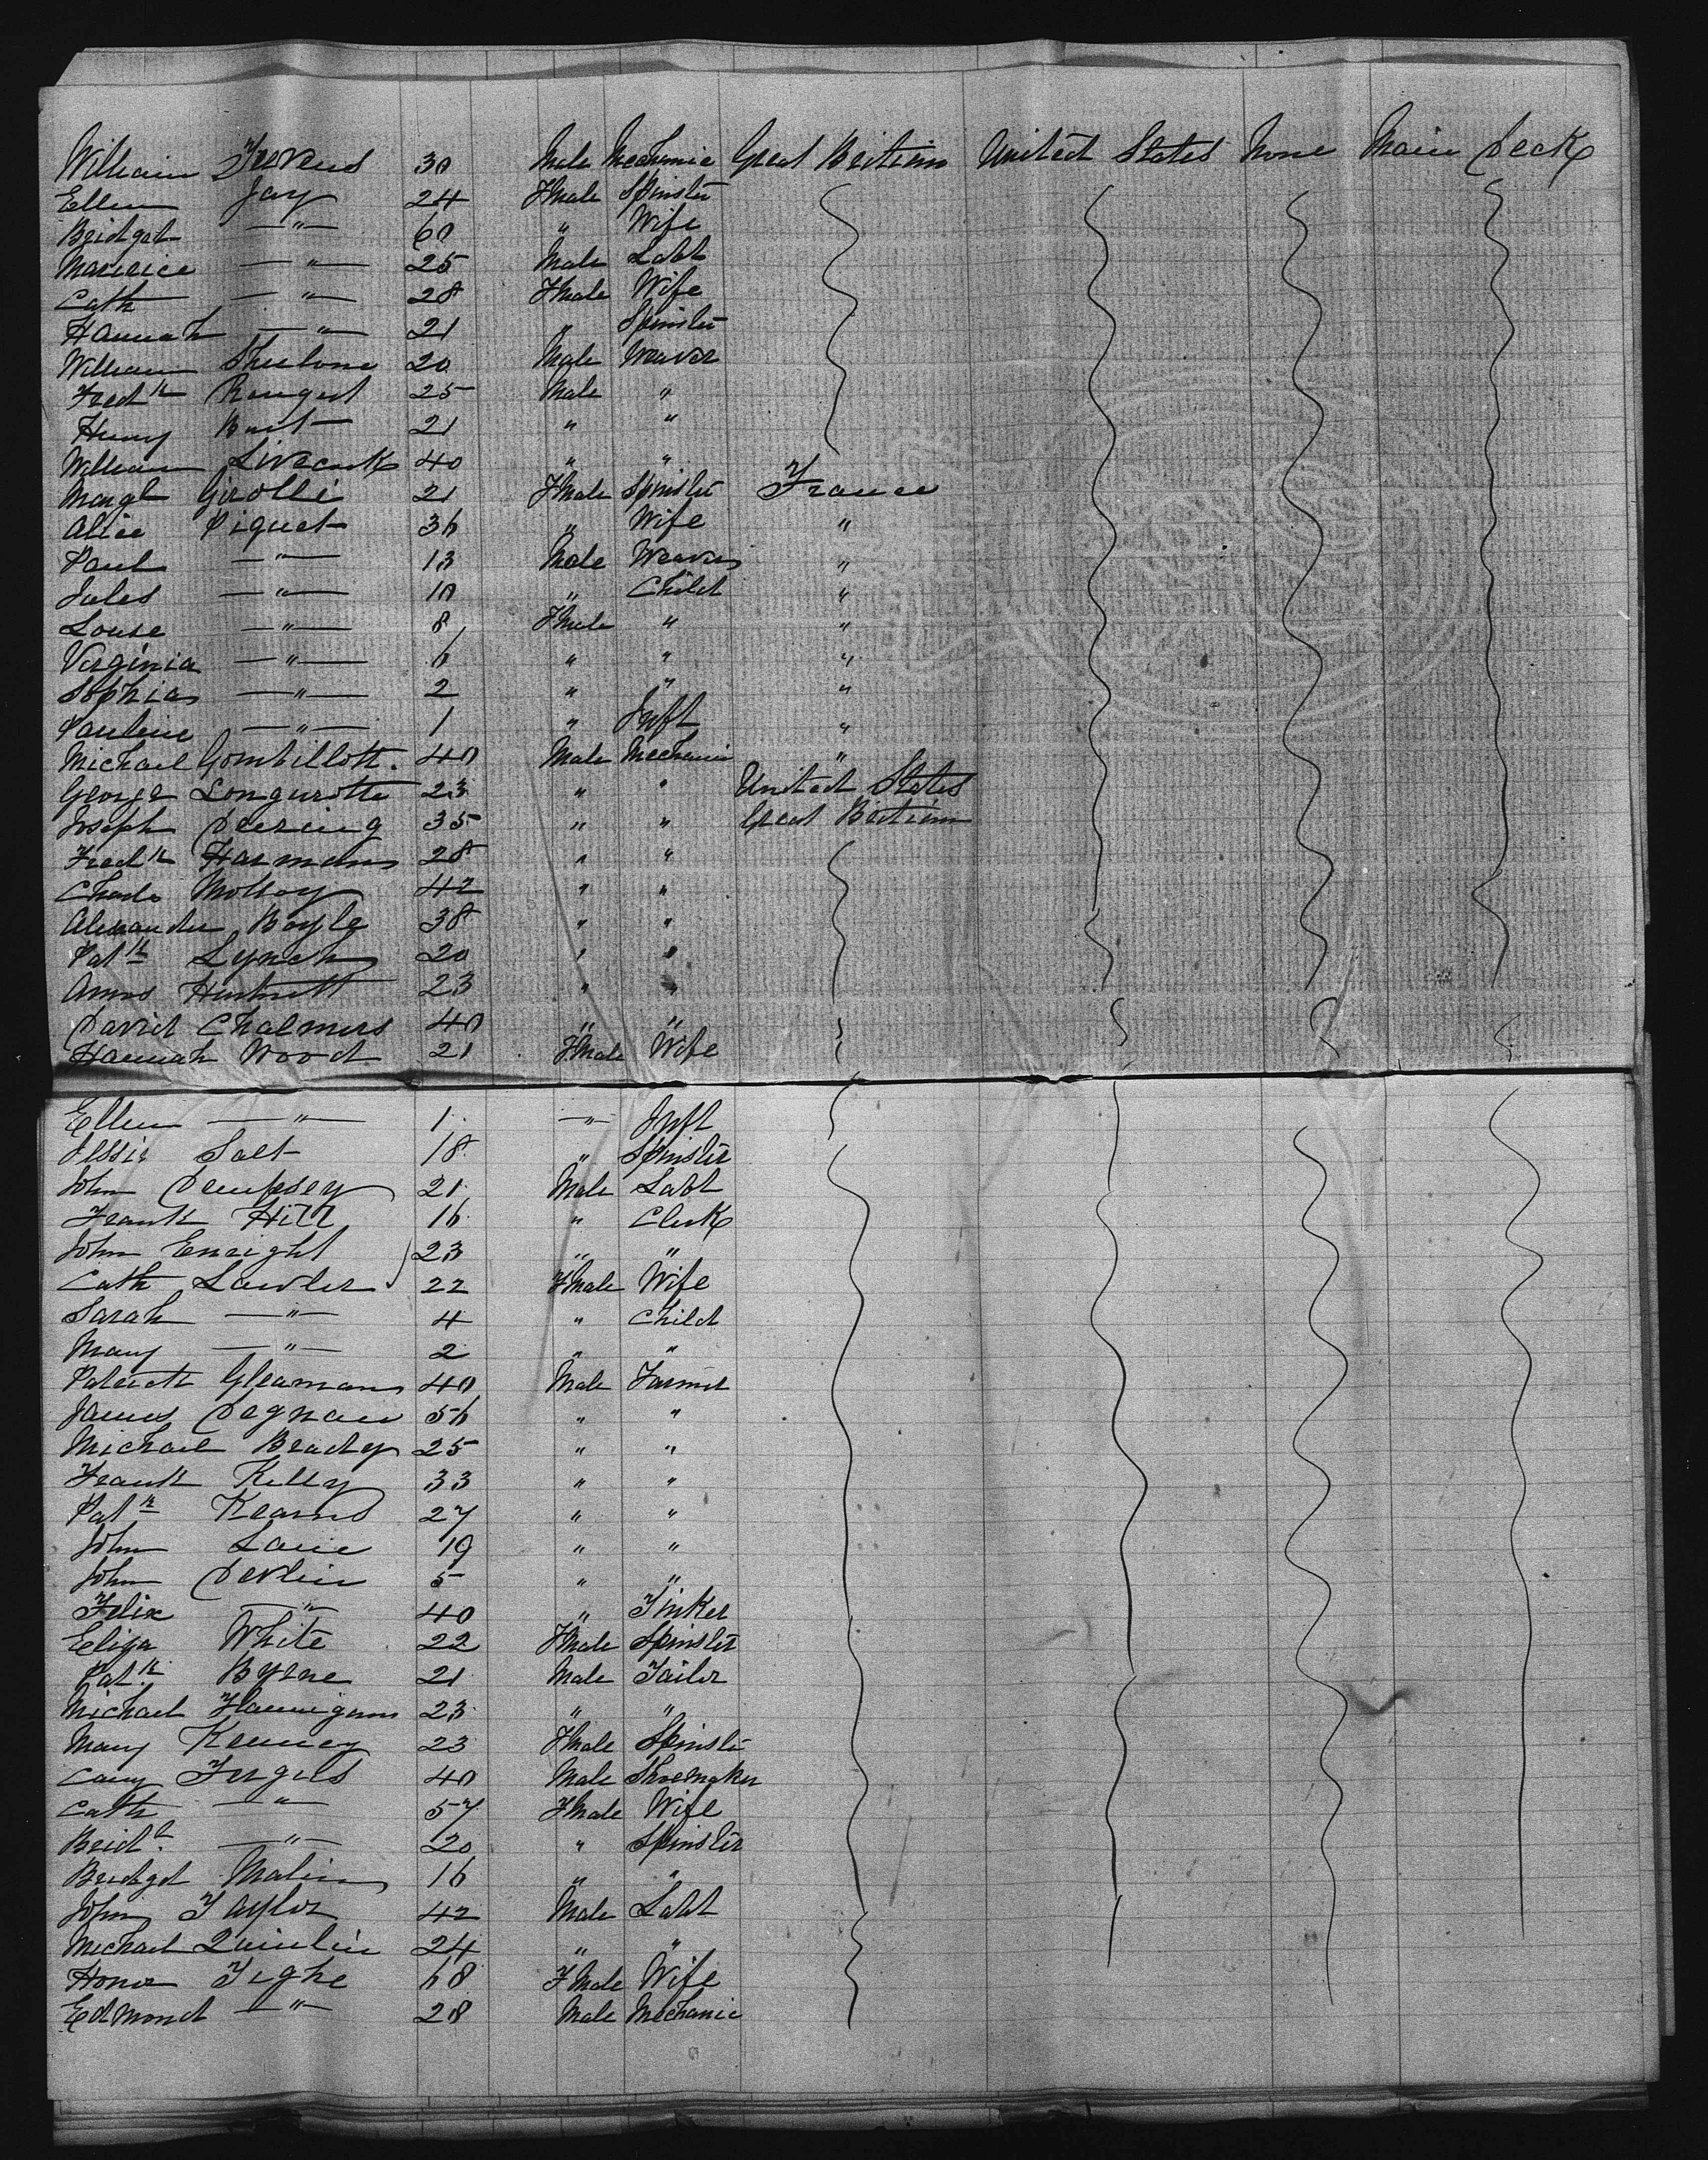 William Stevens 30 Male Mechanic Great Britian United States None Main Deck
Ellen Jay 24 Fmale Spinster
Bridget — " — 60 " Wife
Maurice — " — 25 Male Labt
Cath — " — 28 Fmale Wife
Hannah — " — 21 " Spinster
William 20 Male Weaver
Fredk 25 Male "
Henry Burt 21 " "
William 40 " "
Margt Girolli 21 Fmale Spinster France
Alice Piquet 36 " Wife "
Paul — " — 13 Male Weaver "
Jules — " — 10 " Child "
Louse — " — 8 Fmale " "
Virginia — " — 6 " " "
Sophia — " — 2 " " "
Pauline — " — 1 " Inft "
Michael Gombillott. 40 Male Mechanic "
George Longurotte 23 " " United States
Joseph Deering 35 " " Great Britian
Fredk Harman 28 " "
Charls Molloy 42 " "
Alexander Boyle 38 " "
Patk Lynch 20 " "
Amos 23 " "
David Chalmers 40 " "
Hannah Wood 21 Fmale Wife
Ellen — " — 1 — " — Inft
Jessie Salt 18 " Spinster
John Dempsey 21 Male Labt
Frank Hill 16 " Clerk
John Enright 23 " "
Cath Lawler 22 Fmale Wife
Sarah — " — 4 " Child
Mary — " — 2 " "
Patrick Gleaman 40 Male Farmer
James Degnan 56 " "
Michael Brady 25 " "
Frank Kelly 33 " "
Patk Kearns 27 " "
John Lane 19 " "
John Devlin 5 " "
Felix — " — 40 " Tinker
Eliza White 22 Fmale Spinster
Patk Byrne 21 Male Tailor
Michael Flannigan 23 " "
Mary Kenney 23 Fmale Spinster
Fergus 40 Male Shoemaker
Cath — " — 57 Fmale Wife
Bridt — " — 20 " Spinster
Bridget Malin 16 " "
John Taylor 42 Male Labt
Michael Quinlin 24 " "
Honor Tighe 68 Fmale Wife
Edmond — " — 28 Male Mechanic